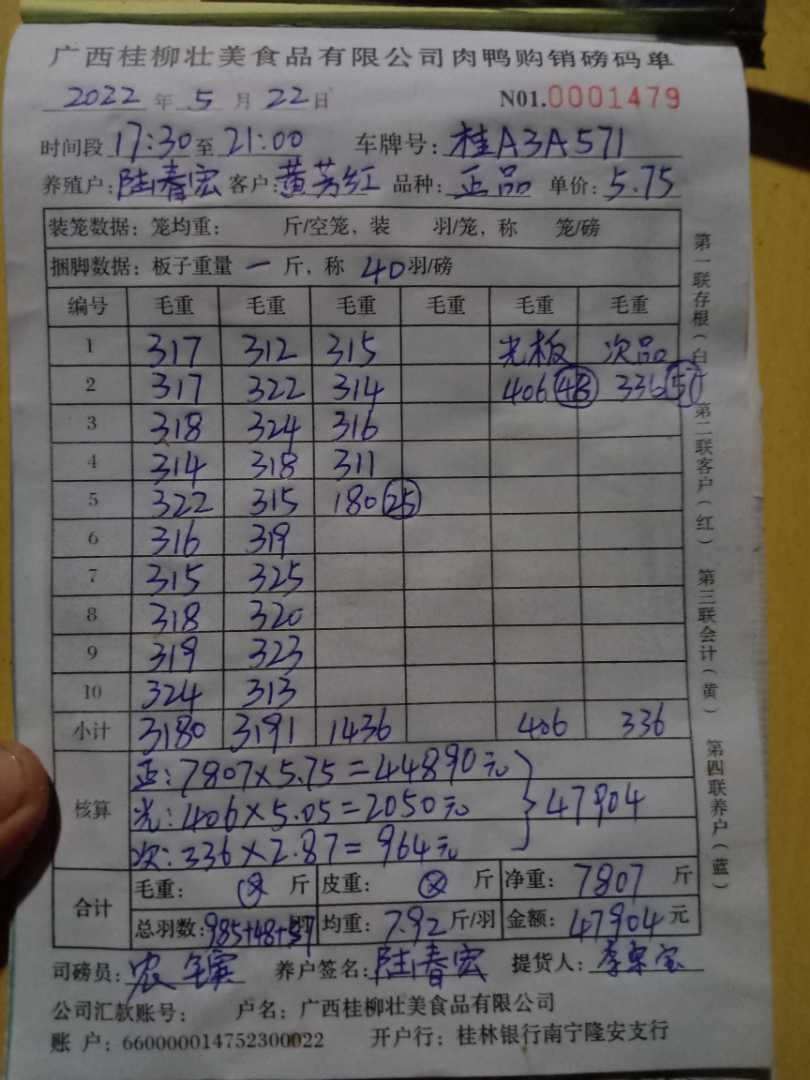 广西桂柳壮美食品有限公司肉鸭购销磅码单
2022年5月22日 N01.0001479
时间段17:30至21:00 车牌号:桂A3A571
养殖户:陆春宏 客户:黄芳红 品种:正品 单价:5.75
装笼数据:笼均重: 斤/空笼,装 羽/笼,称 笼/磅
捆脚数据:板子重量 一 斤,称 40羽/磅
编号 毛重 毛重 毛重 毛重 毛重 毛重
1 317 312 315 光板 次品
2 317 322 314 406 48 336 57
3 318 324 316
4 314 318 311
5 322 315 180 25
6 316 319
7 315 325
8 318 320
9 319 323
10 324 313
小计 3180 3191 1436 406 336
核算 正:7807×5.75=44890元
光:406×5.05=2050元 } 47904
次:336×2.87=964元
合计 毛重: 斤 皮重: 斤 净重:7807斤
总羽数:985+48+57羽 均重:7.92斤/羽 金额:47904元
司磅员:农 养户签名:陆春宏 提货人:
公司汇款账号: 户名:广西桂柳壮美食品有限公司
账 户:660000014752300022 开户行:桂林银行南宁隆安支行
第一联存根(白) 第二联客户(红) 第三联会计(黄) 第四联养户(蓝)